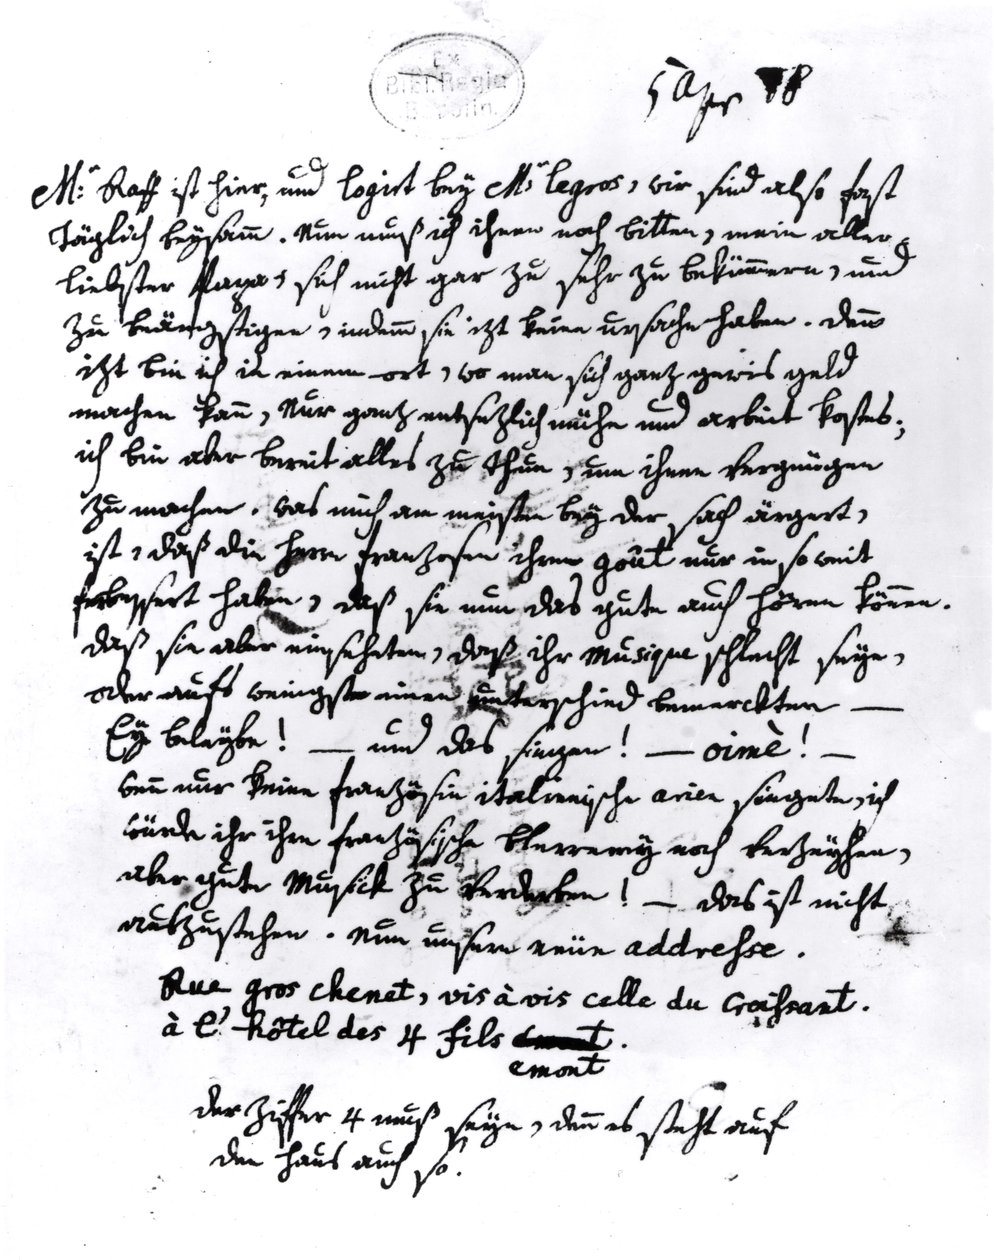 Ex
Bibl. Regia
Berolin.
5 Apr 78
M:r Raff ist hier, und logirt bey M:r legros, wir sind also fast
täglich beysam̅. Nun muß ich ihnen noch bitten, mein aller-
liebster Papa, sich nicht gar zu sehr zu bekümmern, und
zu beängstigen, indem̅ sie izt keine ursache haben. den̅
izt bin ich in einem ort, wo man sich ganz gewis geld
machen kan̅, Nur ganz entsetzlich mühe und arbeit kostes;
ich bin aber bereit alles zu thun, um ihnen vergnügen
zu machen. was mich am meisten bey der sach ärgert,
ist, daß die herrn franzosen ihren goût nur in so weit
verbessert haben, daß sie nun das gute auch hören kön̅en.
daß sie aber einseheten, daß ihr Musique schlecht seye,
oder aufs wenigste einen unterschied bemerckten —
Ey beleybe! — und das singen! — oimè! —
wen̅ nur keine französin italienische arien singete, ich
würde ihr ihre französische Plererey noch verzeyhen,
aber gute Musick zu verderben! — das ist nicht
auszustehen. Nun unsere neüe addresse.
Rue gros chenet, vis à vis celle du Croissant.
à l'hôtel des 4 fils emont.
emont
der Ziffer 4 muß seyn, den̅ es steht auf
den haus auch so.